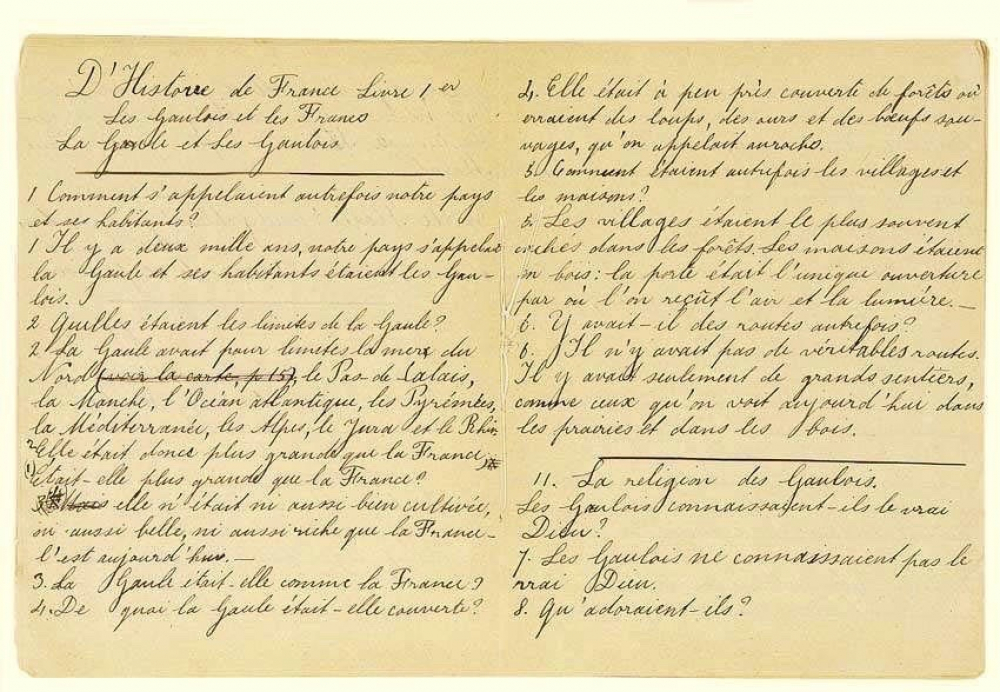 D'Histoire de France Livre 1er
Les Gaulois et les Francs
La Gaule et Les Gaulois
1 Comment s'appelaient autrefois notre pays
et ses habitants?
1 Il y a deux mille ans, notre pays s'appelait
la Gaule et ses habitants étaient les Gau-
lois.
2 Quelles étaient les limites de la Gaule?
2 La Gaule avait pour limites la mer du
Nord (voir la carte, p 15), le Pas-de Calais,
la Manche, l'Océan atlantique, les Pyrénées,
la Méditerranée, les Alpes, le Jura et le Rhin.
2 Elle était donc plus grande que la France
(1) était-elle plus grande que la France?
3 Mais elle n'était ni aussi bien cultivée,
ni aussi belle, ni aussi riche que la France
l'est aujourd'hui. —
3. La Gaule était-elle comme la France?
4. De quoi la Gaule était-elle couverte?
4. Elle était à peu près couverte de forêts où
erraient des loups, des ours et des bœufs sau-
vages, qu'on appelait aurochs.
5 Comment étaient autrefois les villages et
les maisons?
5. Les villages étaient le plus souvent
cachés dans les forêts. Les maisons étaient
en bois: la porte était l'unique ouverture
par où l'on reçût l'air et la lumière. —
6. Y avait-il des routes autrefois?
6. Il n'y avait pas de véritables routes.
Il y avait seulement de grands sentiers,
comme ceux qu'on voit aujourd'hui dans
les prairies et dans les bois.
11. La religion des Gaulois.
Les Gaulois connaissaient-ils le vrai
Dieu?
7. Les Gaulois ne connaissaient pas le
vrai Dieu.
8. Qu'adoraient-ils?